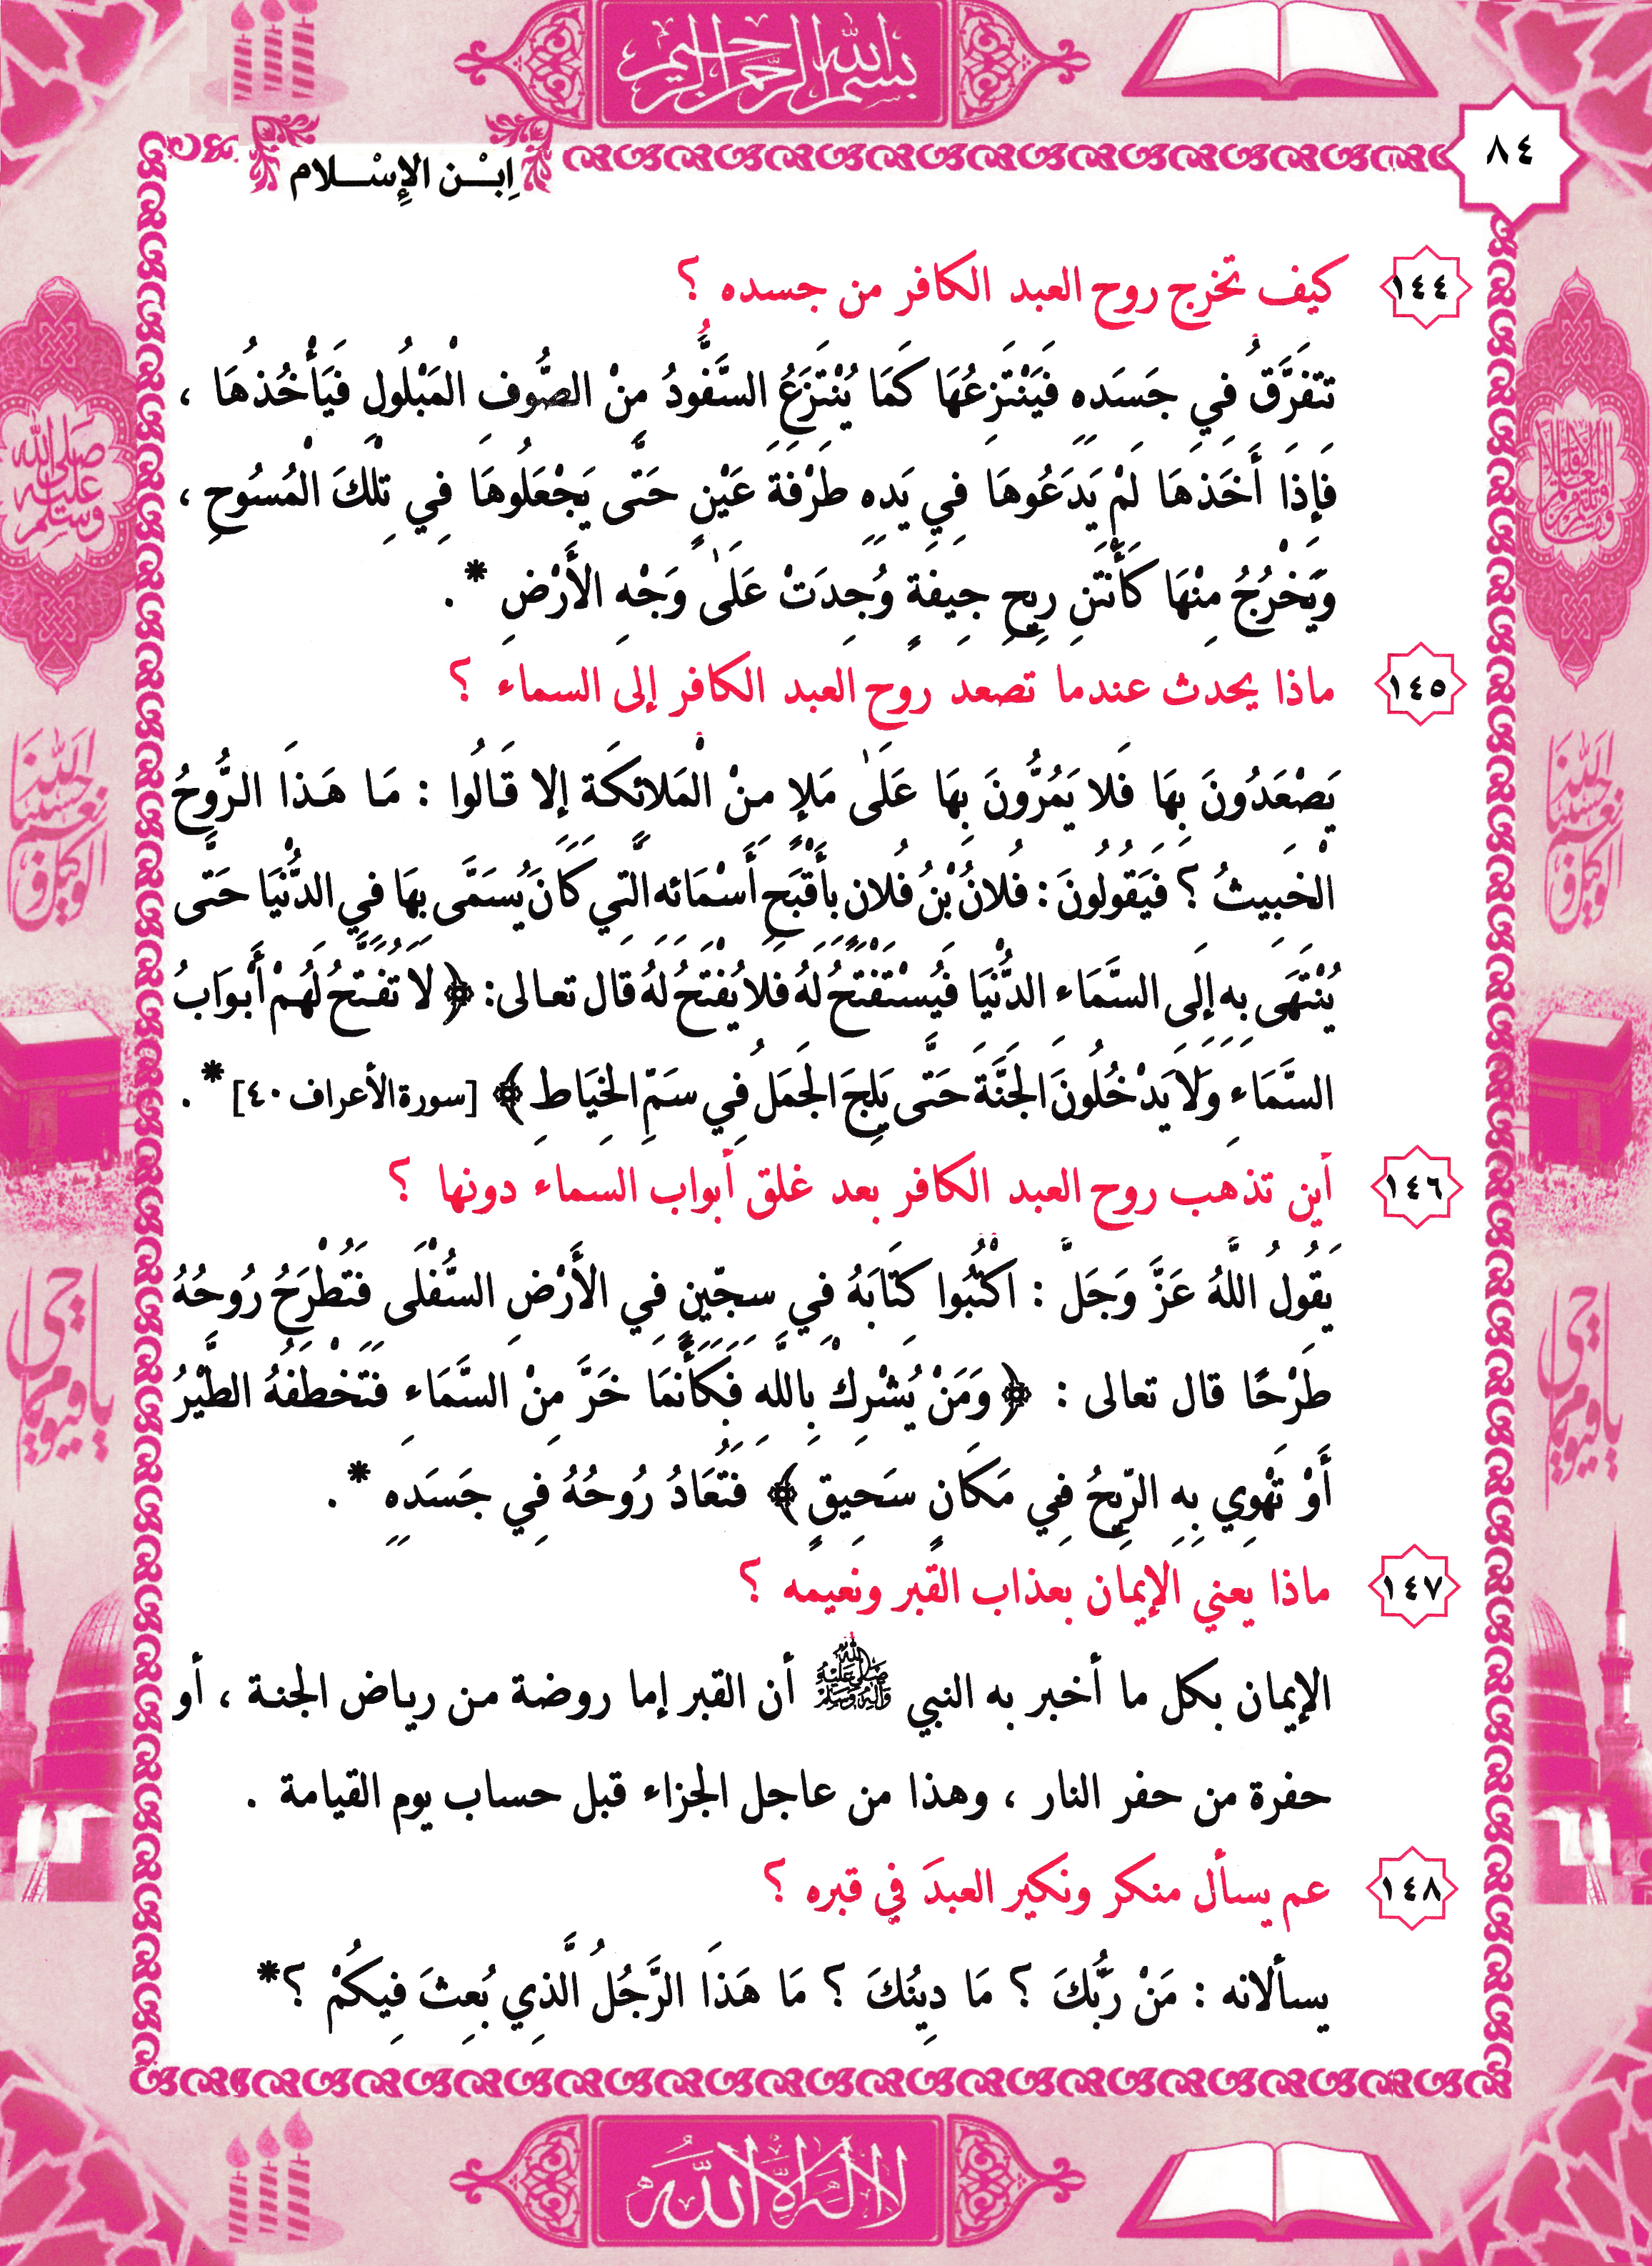 بسم الله الرحمن الرحيم
٨٤
اِبْـــن الإِسْـــلام
١٤٤ كيف تخرج روح العبد الكافر من جسده ؟
تَتَفَرَّقُ فِي جَسَدِهِ فَيَنْتَزِعُهَا كَمَا يُنْتَزَعُ السَّفُّودُ مِنْ الصُّوفِ الْمَبْلُولِ فَيَأْخُذُهَا ،
فَإِذَا أَخَذَهَا لَمْ يَدَعُوهَا فِي يَدِهِ طَرْفَةَ عَيْنٍ حَتَّى يَجْعَلُوهَا فِي تِلْكَ الْمُسُوحِ ،
وَيَخْرُجُ مِنْهَا كَأَنْتَنِ رِيحِ جِيفَةٍ وُجِدَتْ عَلَى وَجْهِ الأَرْضِ * .
١٤٥ ماذا يحدث عندما تصعد روح العبد الكافر إلى السماء ؟
يَصْعَدُونَ بِهَا فَلا يَمُرُّونَ بِهَا عَلَى مَلإٍ مِنْ الْمَلائِكَةِ إِلا قَالُوا : مَا هَذَا الرُّوحُ
الْخَبِيثُ ؟ فَيَقُولُونَ : فُلانُ بْنُ فُلانٍ بِأَقْبَحِ أَسْمَائِهِ الَّتِي كَانَ يُسَمَّى بِهَا فِي الدُّنْيَا حَتَّى
يُنْتَهَى بِهِ إِلَى السَّمَاءِ الدُّنْيَا فَيُسْتَفْتَحُ لَهُ فَلا يُفْتَحُ لَهُ قال تعالى: ﴿ لاَ تُفَتَّحُ لَهُمْ أَبْوَابُ
السَّمَاءِ وَلاَ يَدْخُلُونَ الْجَنَّةَ حَتَّى يَلِجَ الْجَمَلُ فِي سَمِّ الْخِيَاطِ ﴾ [سورة الأعراف ٤٠] * .
١٤٦ أين تذهب روح العبد الكافر بعد غلق أبواب السماء دونها ؟
يَقُولُ اللَّهُ عَزَّ وَجَلَّ : اكْتُبُوا كِتَابَهُ فِي سِجِّينٍ فِي الأَرْضِ السُّفْلَى فَتُطْرَحُ رُوحُهُ
طَرْحًا قال تعالى : ﴿ وَمَنْ يُشْرِكْ بِاللَّهِ فَكَأَنَّمَا خَرَّ مِنْ السَّمَاءِ فَتَخْطَفُهُ الطَّيْرُ
أَوْ تَهْوِي بِهِ الرِّيحُ فِي مَكَانٍ سَحِيقٍ ﴾ فَتُعَادُ رُوحُهُ فِي جَسَدِهِ * .
١٤٧ ماذا يعني الإيمان بعذاب القبر ونعيمه ؟
الإيمان بكل ما أخبر به النبي ﷺ أن القبر إما روضة من رياض الجنة ، أو
حفرة من حفر النار ، وهذا من عاجل الجزاء قبل حساب يوم القيامة .
١٤٨ عم يسأل منكر ونكير العبدَ في قبره ؟
يسألانه : مَنْ رَبُّكَ ؟ مَا دِينُكَ ؟ مَا هَذَا الرَّجُلُ الَّذِي بُعِثَ فِيكُمْ ؟ *
صلى الله عليه وسلم
حسبنا الله ونعم الوكيل
حسبنا الله ونعم الوكيل
يا حي يا قيوم
يا حي يا قيوم
لا إله إلا الله